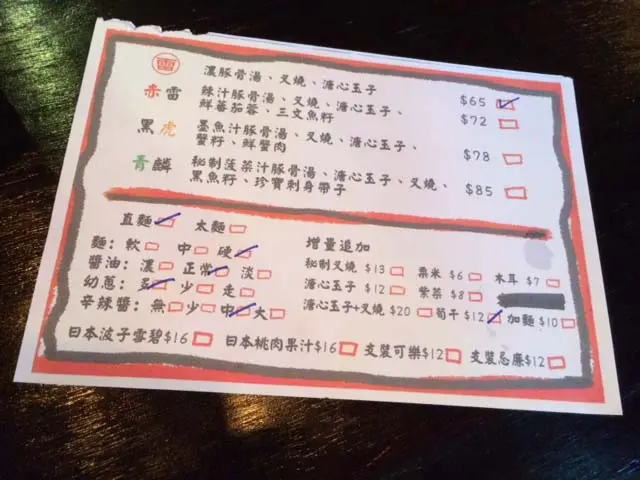 濃豚骨湯、叉燒、溏心玉子 $65
赤雷 辣汁豚骨湯、叉燒、溏心玉子、
鮮蕃茄蓉、三文魚籽 $72
黑虎 墨魚汁豚骨湯、叉燒、溏心玉子、
蟹籽、鮮蟹肉 $78
青麟 秘制菠菜汁豚骨湯、溏心玉子、叉燒、
黑魚籽、珍寶刺身帶子 $85
直麵 太麵
麵: 軟 中 硬
醬油: 濃 正常 淡
幼蔥: 多 少 走
辛辣醬: 無 少 中 大
增量追加
秘制叉燒 $13 粟米 $6 木耳 $7
溏心玉子 $12 紫菜 $8
溏心玉子+叉燒 $20 筍干 $12 加麵 $10
日本波子雪碧$16 日本桃肉果汁$16 支裝可樂$12 支裝忌廉$12